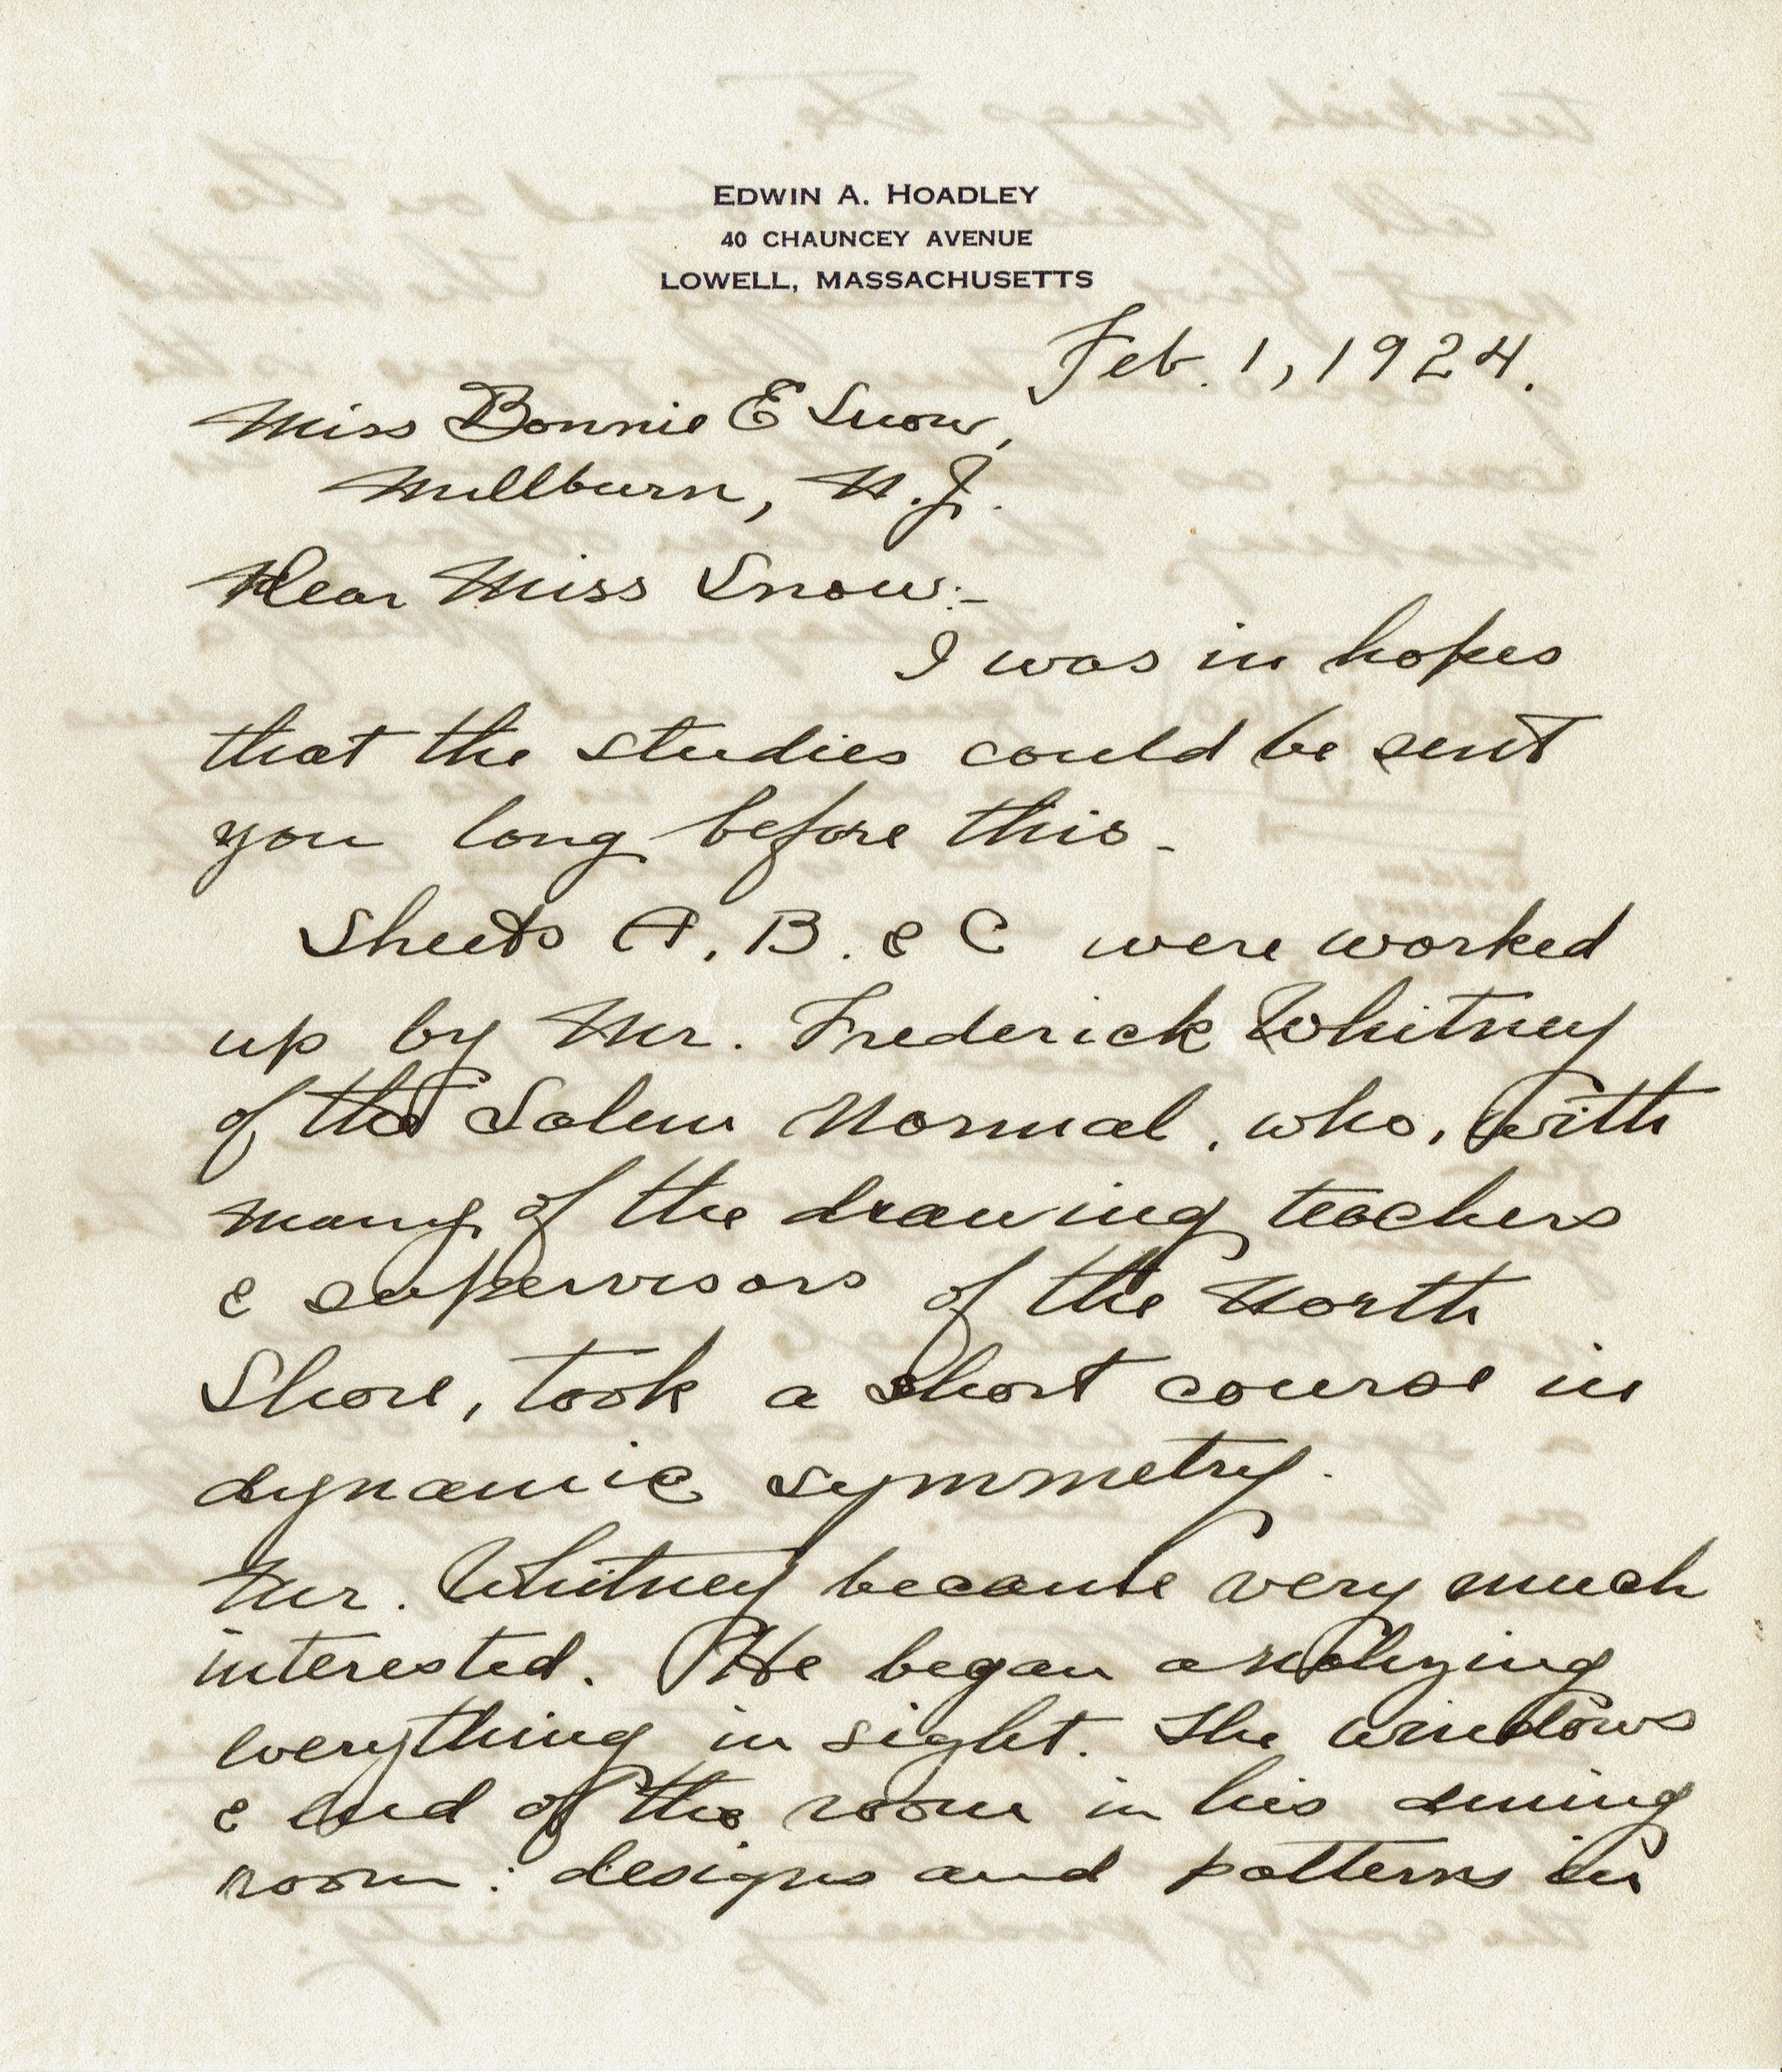 EDWIN A. HOADLEY
40 CHAUNCEY AVENUE
LOWELL, MASSACHUSETTS
Feb. 1, 1924.
Miss Bonnie E Snow,
Millburn, N.J.
Dear Miss Snow:-
I was in hopes
that the studies could be sent
you long before this.
Sheets A, B. & C were worked
up by Mr. Frederick Whitney
of the Salem Normal, who, with
many of the drawing teachers
& supervisors of the North
Shore, took a short course in
dynamic symmetry.
Mr. Whitney became very much
interested. He began analyzing
everything in sight. The windows
& end of the room in his dining
room: designs and patterns in